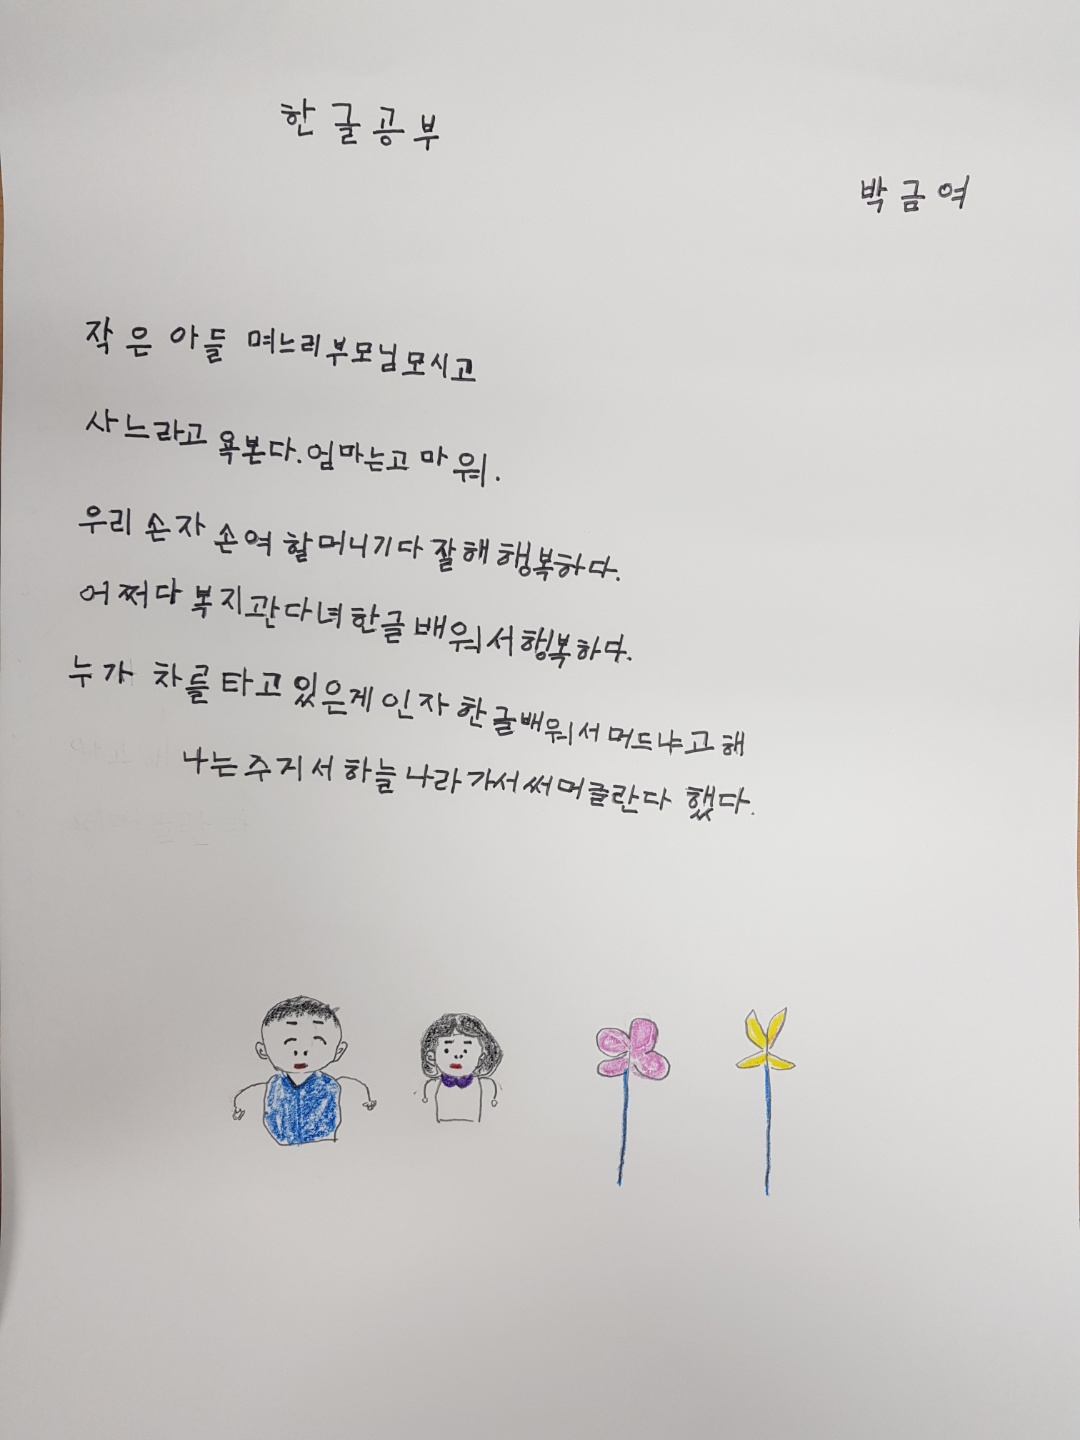 한글공부
박금여
작은 아들 며느리부모님모시고
사느라고 욕본다. 엄마는고마워.
우리 손자 손여 할머니기다 잘해 행복하다.
어쩌다 복지관다녀한글 배워서행복하다.
누가 차를 타고있은게 인자 한글배워서 머드냐고해
나는주지서 하늘나라가서써머글란다 했다.